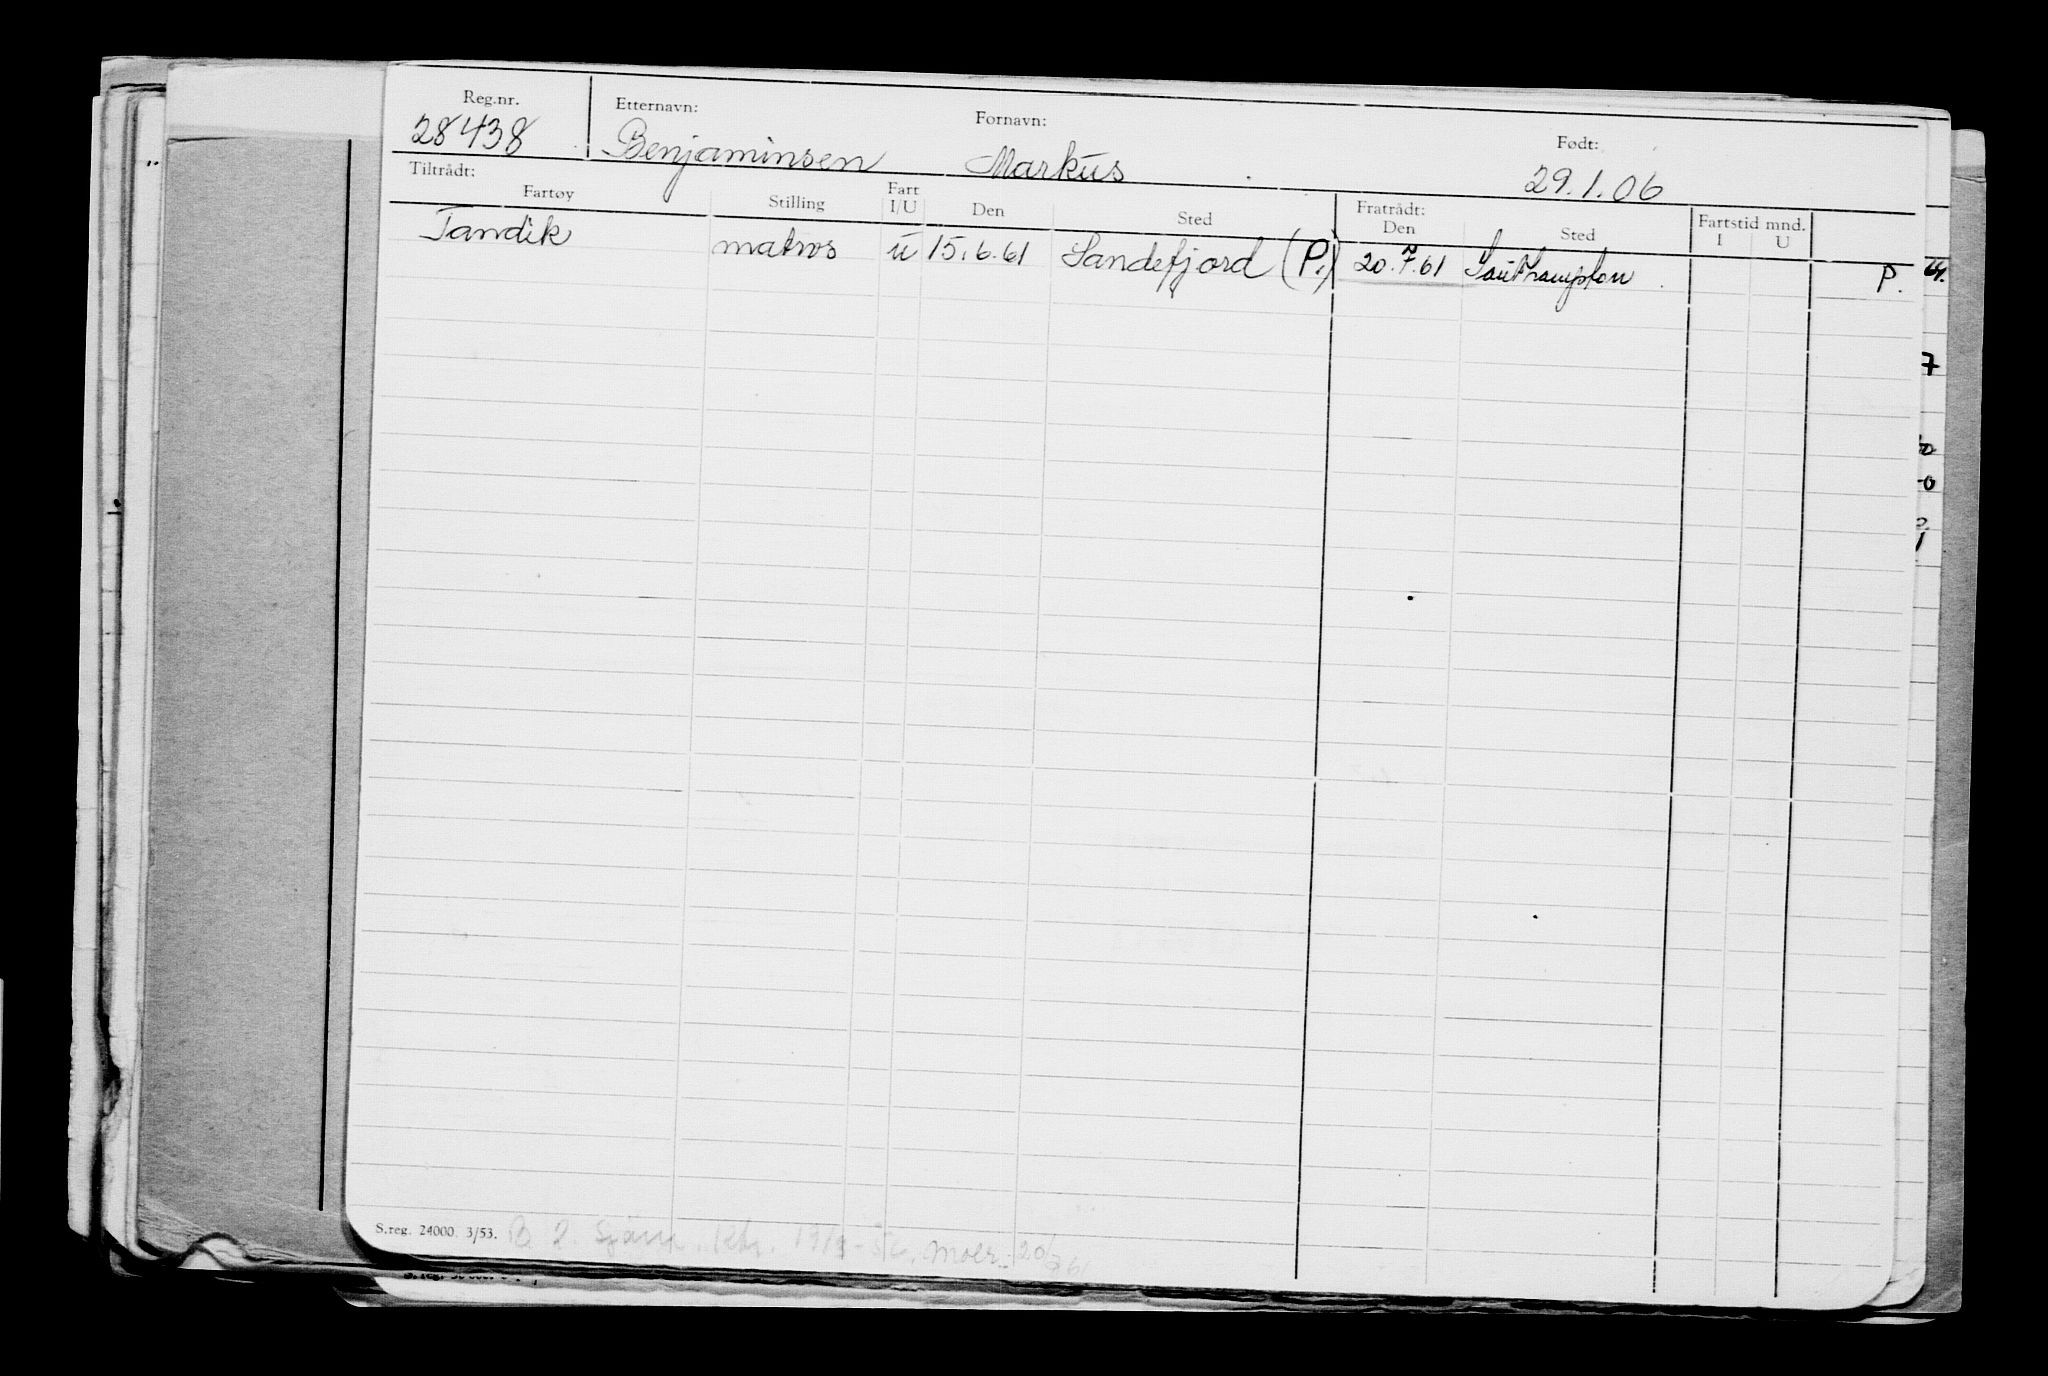 Reg.nr. Etternavn: Fornavn: Født:
28438 Benjaminsen Markus 29.1.06
Tiltrådt: Fratrådt: Fartstid mnd.
Fartøy Stilling Fart I/U Den Sted Den Sted I U
Tandik matros u 15.6.61 Sandefjord (P.) 20.7.61 Southampton P.
S.reg. 24000. 3/53. B. 2. 20/